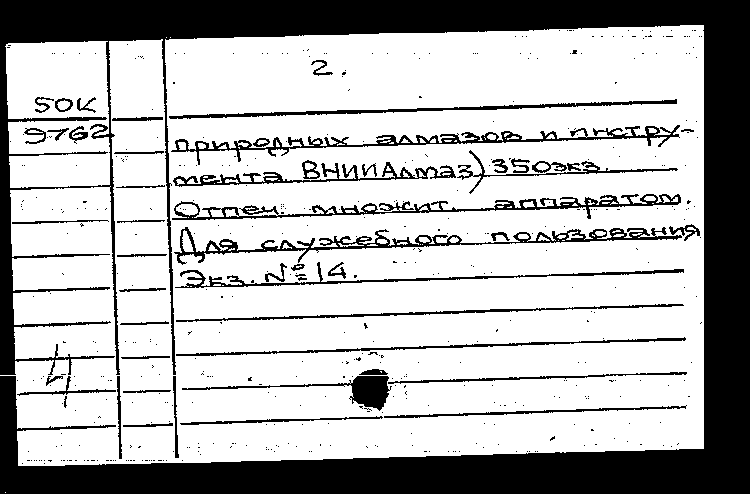 2.
50К
9762
природных алмазов и инстру-
мента ВНИИАлмаз) 350экз.
Отпеч. множит. аппаратом.
Для служебного пользования
Экз. № 14.
4